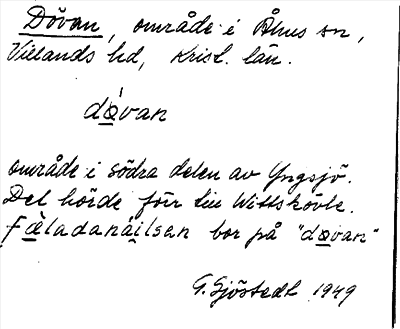 Dövan, område i Åhus sn,
Villands hd, Krist. län.
dø̱̀van
område i södra delen av Yngsjö.
Det hörde förr till Wittskövle.
Fæ̱̀ladanåi̯lsen bor på "dø̱van"
G. Sjöstedt 1949